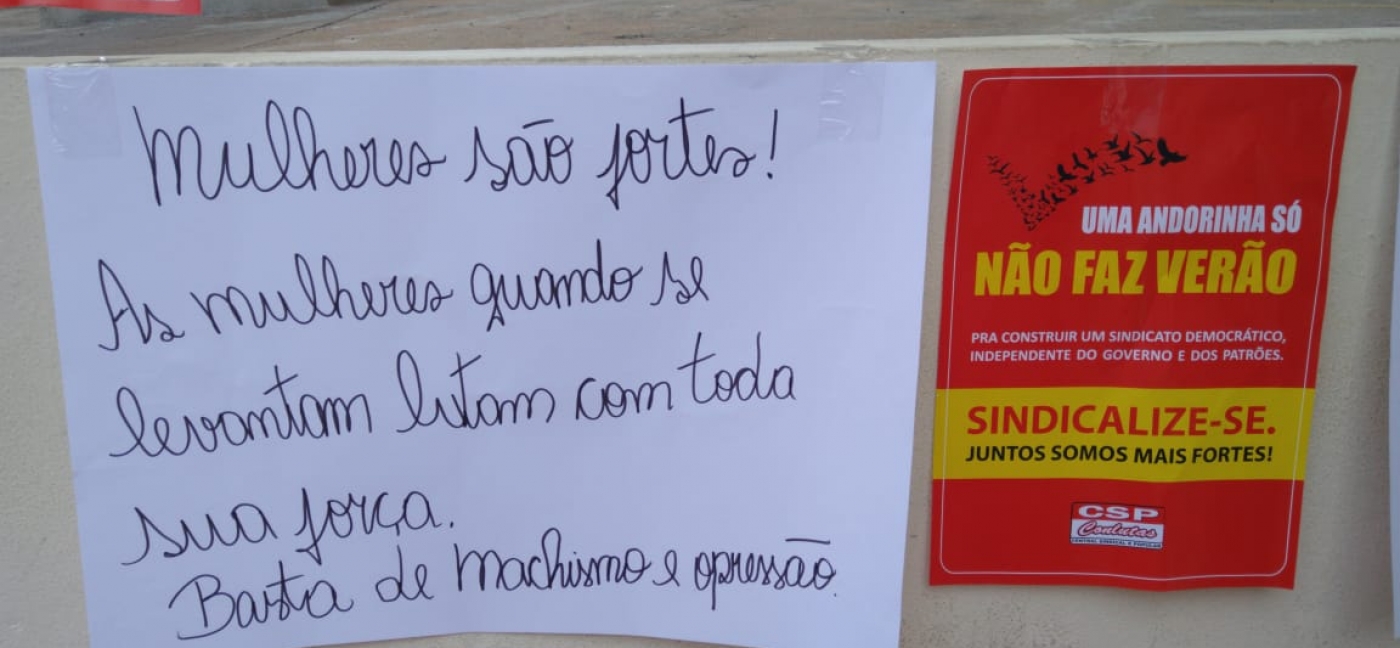 Mulheres são fortes!
As mulheres quando se
levantam lutam com toda
sua força.
Basta de machismo e opressão.
UMA ANDORINHA SÓ
NÃO FAZ VERÃO
PRA CONSTRUIR UM SINDICATO DEMOCRÁTICO,
INDEPENDENTE DO GOVERNO E DOS PATRÕES.
SINDICALIZE-SE.
JUNTOS SOMOS MAIS FORTES!
CSP
Conlutas
CENTRAL SINDICAL E POPULAR